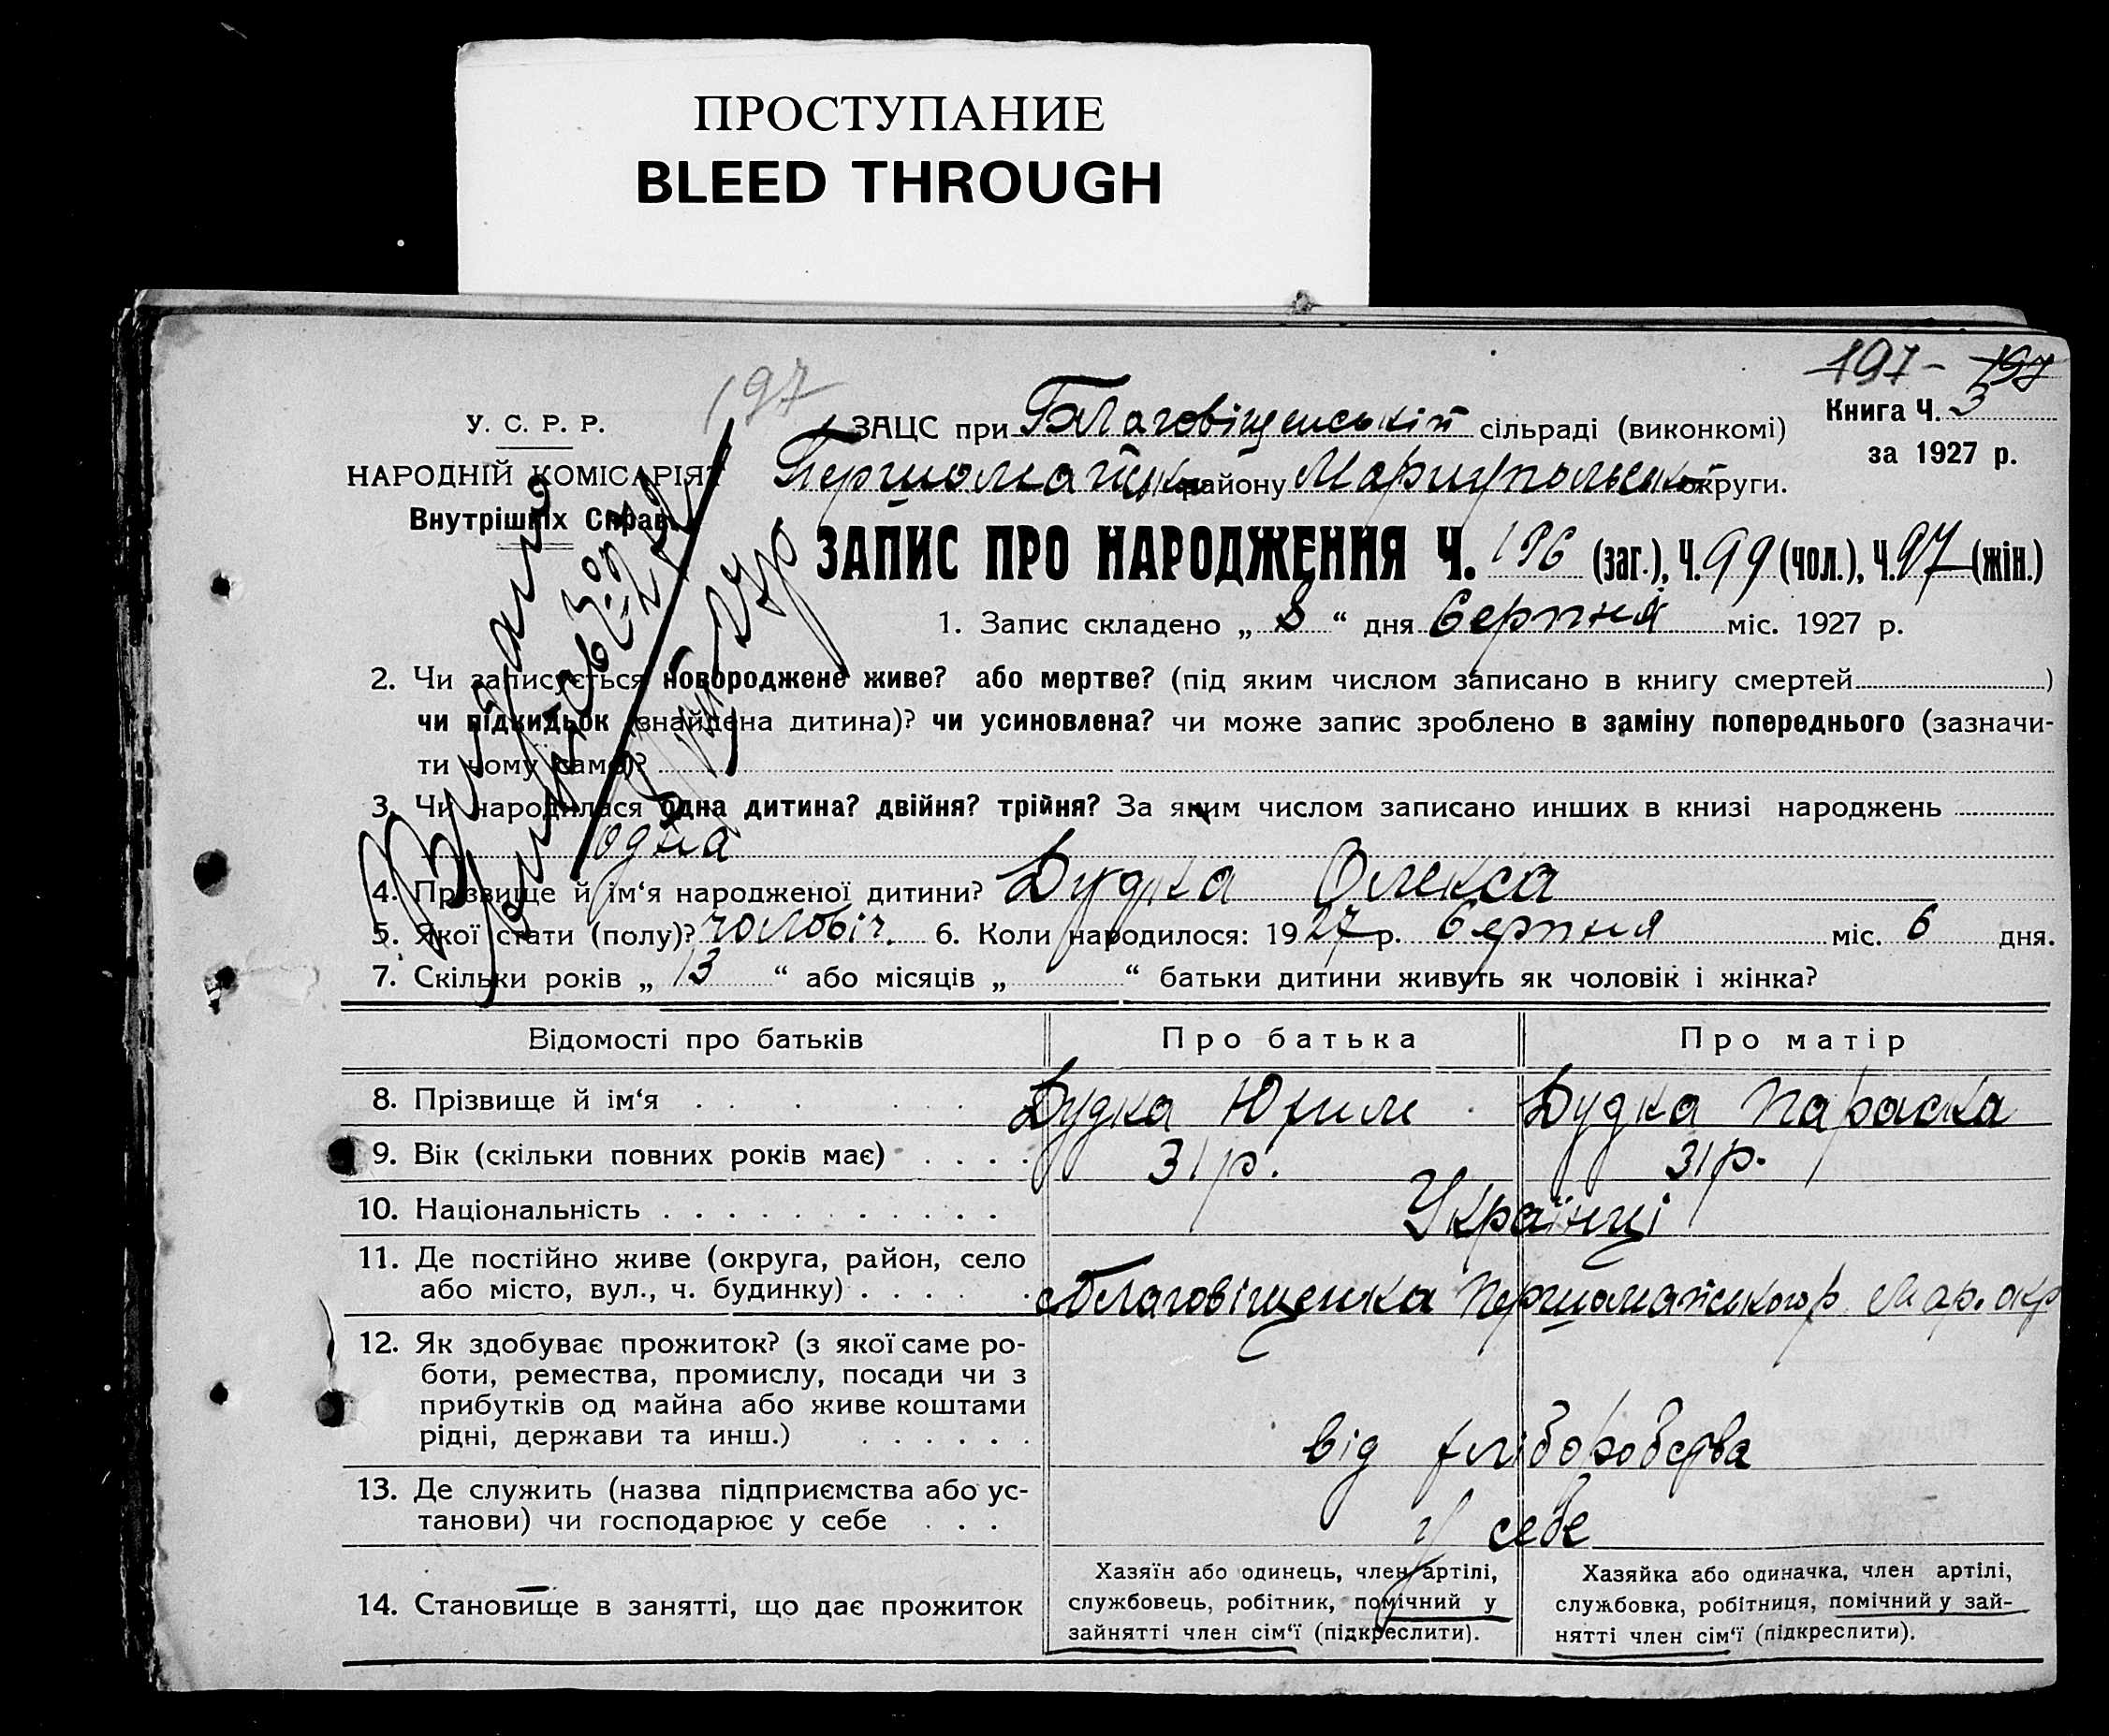 ПРОСТУПАНИЕ
BLEED THROUGH
197- 197
197
Книга Ч. 3
за 1927 р.
У. С. Р. Р.
НАРОДНІЙ КОМІСАРІЯТ
Внутрішніх Справ
ЗАЦС при Благовіщенській сільраді (виконкомі)
Першомайськ району Маріупольськ округи.
ЗАПИС ПРО НАРОДЖЕННЯ Ч. 196 (заг.), Ч. 99 (чол.), Ч. 97 (жін.)
1. Запис складено „ 8 “ дня Серпня міс. 1927 р.
2. Чи записується новороджене живе? або мертве? (під яким числом записано в книгу смертей )
чи підкидьок (знайдена дитина)? чи усиновлена? чи може запис зроблено в заміну попереднього (зазначи-
ти чому саме)?
3. Чи народилася одна дитина? двійня? трійня? За яким числом записано инших в книзі народжень
одна
4. Прізвище й ім‘я народженої дитини? Дудка Олекса
5. Якої стати (полу)? чоловіч. 6. Коли народилося: 1927 р. Серпня міс. 6 дня.
7. Скільки років „ 13 “ або місяців „ “ батьки дитини живуть як чоловік і жінка?
Відомості про батьків Про батька Про матір
8. Прізвище й ім‘я Дудка Юхим Дудка Параска
9. Вік (скільки повних років має) 31 р. 31 р.
10. Національність Українці
11. Де постійно живе (округа, район, село
або місто, вул., ч. будинку) с Благовіщенка Першомайського р. Мар. окр
12. Як здобуває прожиток? (з якої саме ро-
боти, ремества, промислу, посади чи з
прибутків од майна або живе коштами
рідні, держави та инш.) від хліборобства
13. Де служить (назва підприємства або ус-
танови) чи господарює у себе у себе
14. Становище в занятті, що дає прожиток
Хазяїн або одинець, член артілі,
службовець, робітник, помічний у
зайнятті член сім‘ї (підкреслити).
Хазяйка або одиначка, член артілі,
службовка, робітниця, помічний у зай-
нятті член сім‘ї (підкреслити).